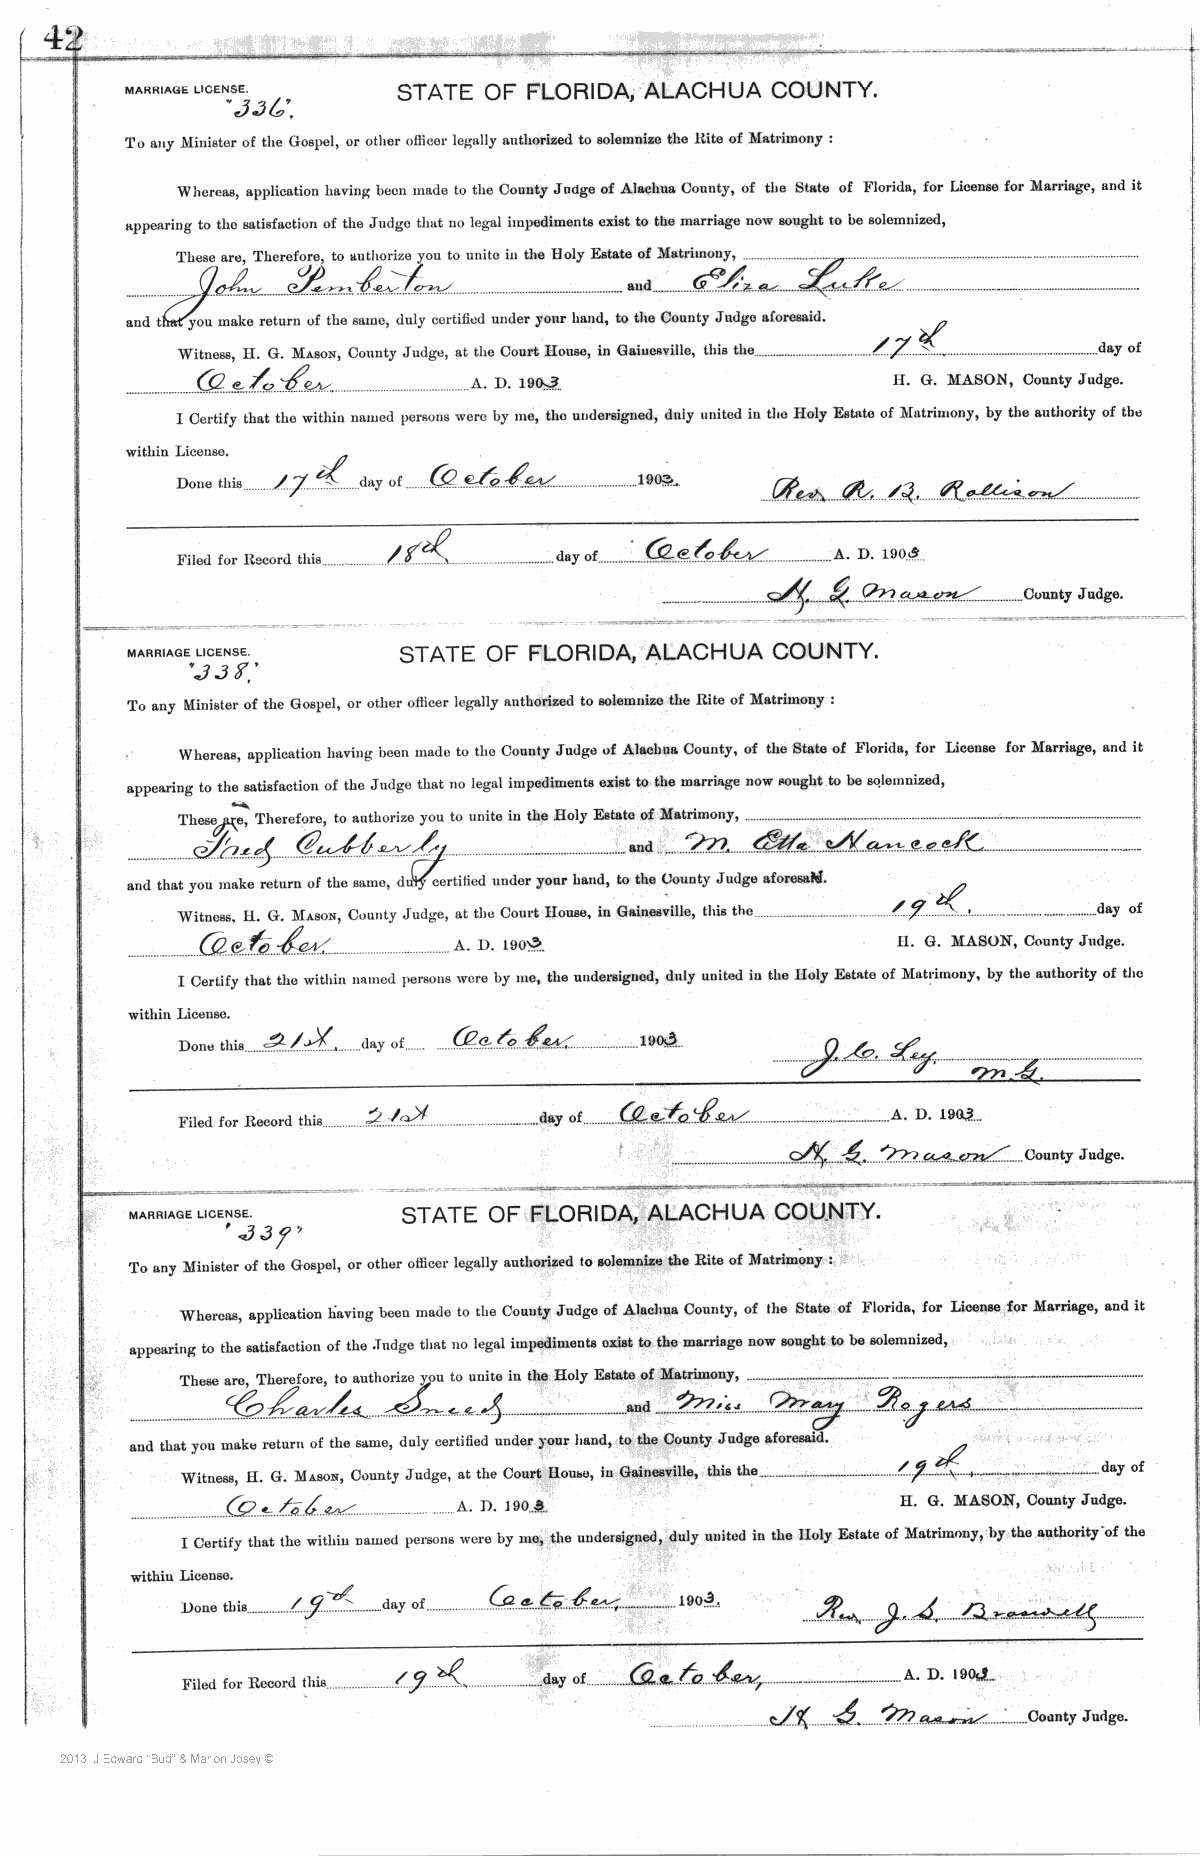 42
MARRIAGE LICENSE. STATE OF FLORIDA, ALACHUA COUNTY.
"336".
To any Minister of the Gospel, or other officer legally authorized to solemnize the Rite of Matrimony :
Whereas, application having been made to the County Judge of Alachua County, of the State of Florida, for License for Marriage, and it
appearing to the satisfaction of the Judge that no legal impediments exist to the marriage now sought to be solemnized,
These are, Therefore, to authorize you to unite in the Holy Estate of Matrimony,
John Pemberton and Eliza Luke
and that you make return of the same, duly certified under your hand, to the County Judge aforesaid.
Witness, H. G. MASON, County Judge, at the Court House, in Gainesville, this the 17th day of
October A. D. 1903 H. G. MASON, County Judge.
I Certify that the within named persons were by me, the undersigned, duly united in the Holy Estate of Matrimony, by the authority of the
within License.
Done this 17th day of October 1903. Rev. R. B. Rollison
Filed for Record this 18th day of October A. D. 1903
H. G. Mason County Judge.
MARRIAGE LICENSE. STATE OF FLORIDA, ALACHUA COUNTY.
"338".
To any Minister of the Gospel, or other officer legally authorized to solemnize the Rite of Matrimony :
Whereas, application having been made to the County Judge of Alachua County, of the State of Florida, for License for Marriage, and it
appearing to the satisfaction of the Judge that no legal impediments exist to the marriage now sought to be solemnized,
These are, Therefore, to authorize you to unite in the Holy Estate of Matrimony,
Fred Cubberly and M. Etta Hancock
and that you make return of the same, duly certified under your hand, to the County Judge aforesaid.
Witness, H. G. MASON, County Judge, at the Court House, in Gainesville, this the 19th. day of
October. A. D. 1903 H. G. MASON, County Judge.
I Certify that the within named persons were by me, the undersigned, duly united in the Holy Estate of Matrimony, by the authority of the
within License.
Done this 21st. day of October. 1903 J. C. Ley.
M.G.
Filed for Record this 21st day of October A. D. 1903
H. G. Mason County Judge.
MARRIAGE LICENSE. STATE OF FLORIDA, ALACHUA COUNTY.
"339"
To any Minister of the Gospel, or other officer legally authorized to solemnize the Rite of Matrimony :
Whereas, application having been made to the County Judge of Alachua County, of the State of Florida, for License for Marriage, and it
appearing to the satisfaction of the Judge that no legal impediments exist to the marriage now sought to be solemnized,
These are, Therefore, to authorize you to unite in the Holy Estate of Matrimony,
Charles Sneed and Miss Mary Rogers
and that you make return of the same, duly certified under your hand, to the County Judge aforesaid.
Witness, H. G. MASON, County Judge, at the Court House, in Gainesville, this the 19th. day of
October A. D. 1903 H. G. MASON, County Judge.
I Certify that the within named persons were by me, the undersigned, duly united in the Holy Estate of Matrimony, by the authority of the
within License.
Done this 19th day of October, 1903. Rev. J. S. Braswell
Filed for Record this 19th. day of October, A. D. 1903
H. G. Mason County Judge.
2013 J Edward "Bud" & Marion Josey ©